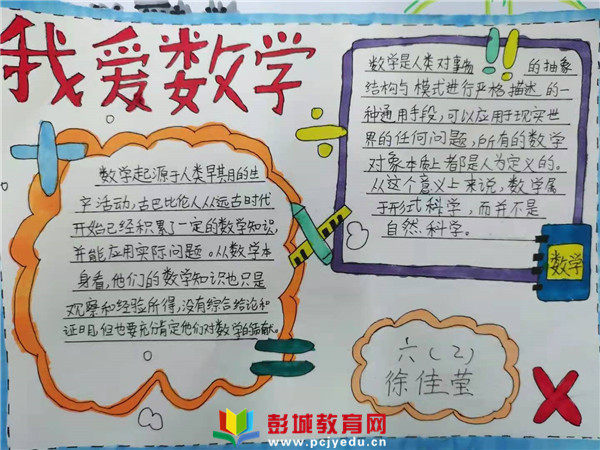 我爱数学
数学起源于人类早期的生
产活动,古巴比伦人从远古时代
开始已经积累了一定的数学知识,
并能应用实际问题。从数学本
身看,他们的数学知识也只是
观察和经验所得,没有综合结论和
证明,但也要充分肯定他们对数学的贡献。
数学是人类对事物 的抽象
结构与模式进行严格描述的一
种通用手段,可以应用于现实世
界的任何问题,所有的数学
对象本质上都是人为定义的。
从这个意义上来说,数学属
于形式科学,而并不是
自然科学。
数学
六(2)
徐佳莹
彭城教育网
www.pcjyedu.cn